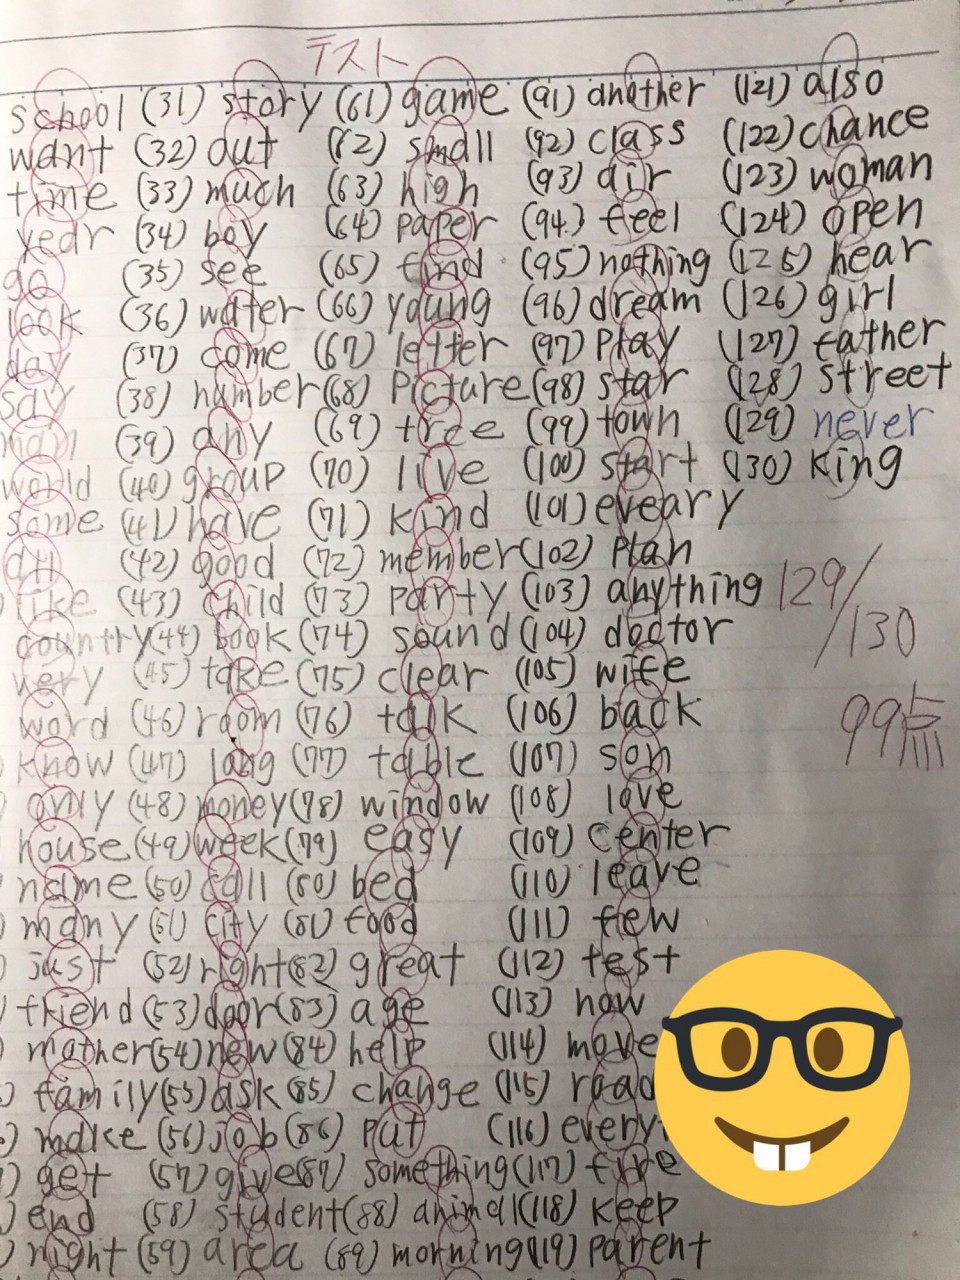 テスト
school (31) story (61) game (91) another (121) also
want (32) out (62) small (92) class (122) chance
time (33) much (63) high (93) air (123) woman
year (34) boy (64) paper (94) feel (124) open
go (35) see (65) find (95) nothing (125) hear
look (36) water (66) young (96) dream (126) girl
day (37) come (67) letter (97) play (127) father
say (38) number (68) picture (98) star (128) street
man (39) any (69) tree (99) town (129) never
world (40) group (70) live (100) start (130) king
some (41) have (71) kind (101) eveary
all (42) good (72) member (102) plan
like (43) child (73) party (103) anything 129/130
country (44) book (74) sound (104) doctor
very (45) take (75) clear (105) wife
word (46) room (76) talk (106) back 99点
know (47) long (77) table (107) son
only (48) money (78) window (108) love
house (49) week (79) easy (109) center
name (50) call (80) bed (110) leave
many (51) city (81) food (111) few
just (52) right (82) great (112) test
friend (53) door (83) age (113) how
mother (54) new (84) help (114) move
family (55) ask (85) change (115) road
make (56) job (86) put (116)
get (57) give (87) something (117) fire
end (58) student (88) animal (118) keep
night (59) area (89) morning (119) parent